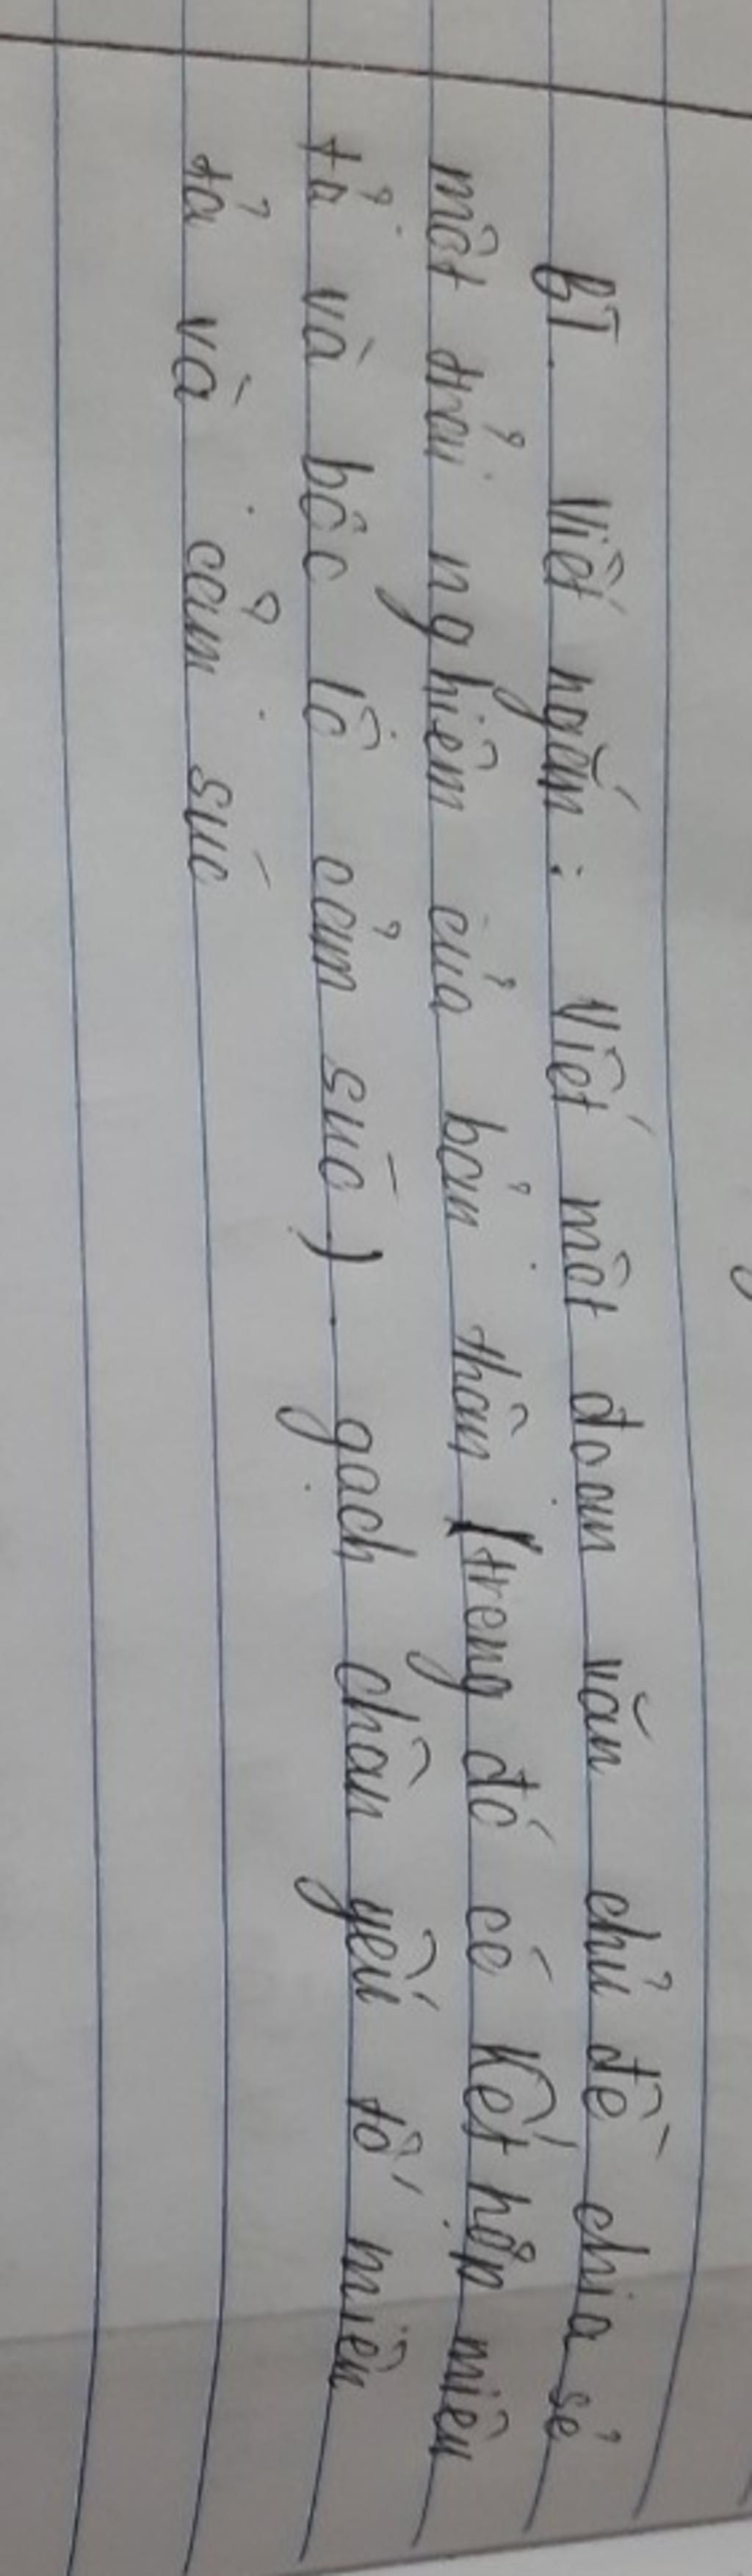 BT. Viết ngắn: Viết một đoạn văn chủ đề chia sẻ
một trải nghiệm của bản thân (trong đó có kết hợp miêu
tả và bộc lộ cảm súc). gạch chân yếu tố miêu
tả và cảm súc